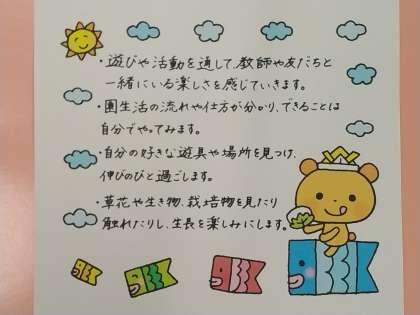 ・遊びや活動を通して、教師や友だちと
一緒にいる楽しさを感じていきます。
・園生活の流れや仕方が分かり、できることは
自分でやってみます。
・自分の好きな遊具や場所を見つけ、
伸びのびと過ごします。
・草花や生き物、栽培物を見たり
触れたりし、生長を楽しみにします。